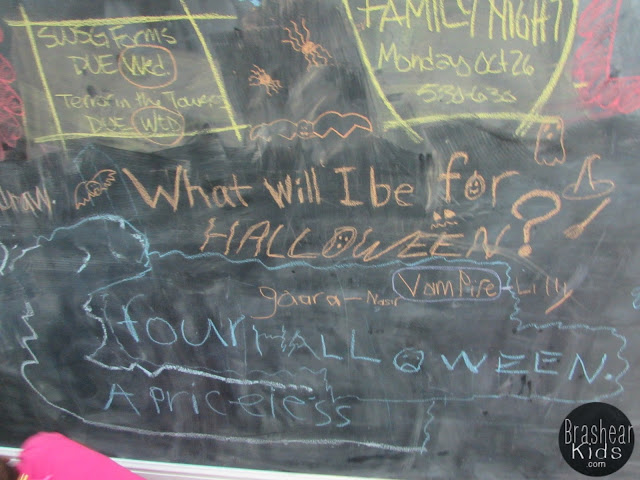 SWSG Forms
DUE Wed
Terror in the
DUE WED
FAMILY NIGHT
Monday Oct 26
530-630
draw.
What will I be for
HALLOWEEN?
gaara - Nasir
Vampire - Lilly
four HALLOWEEN.
A priceless
Brashear
Kids
.com